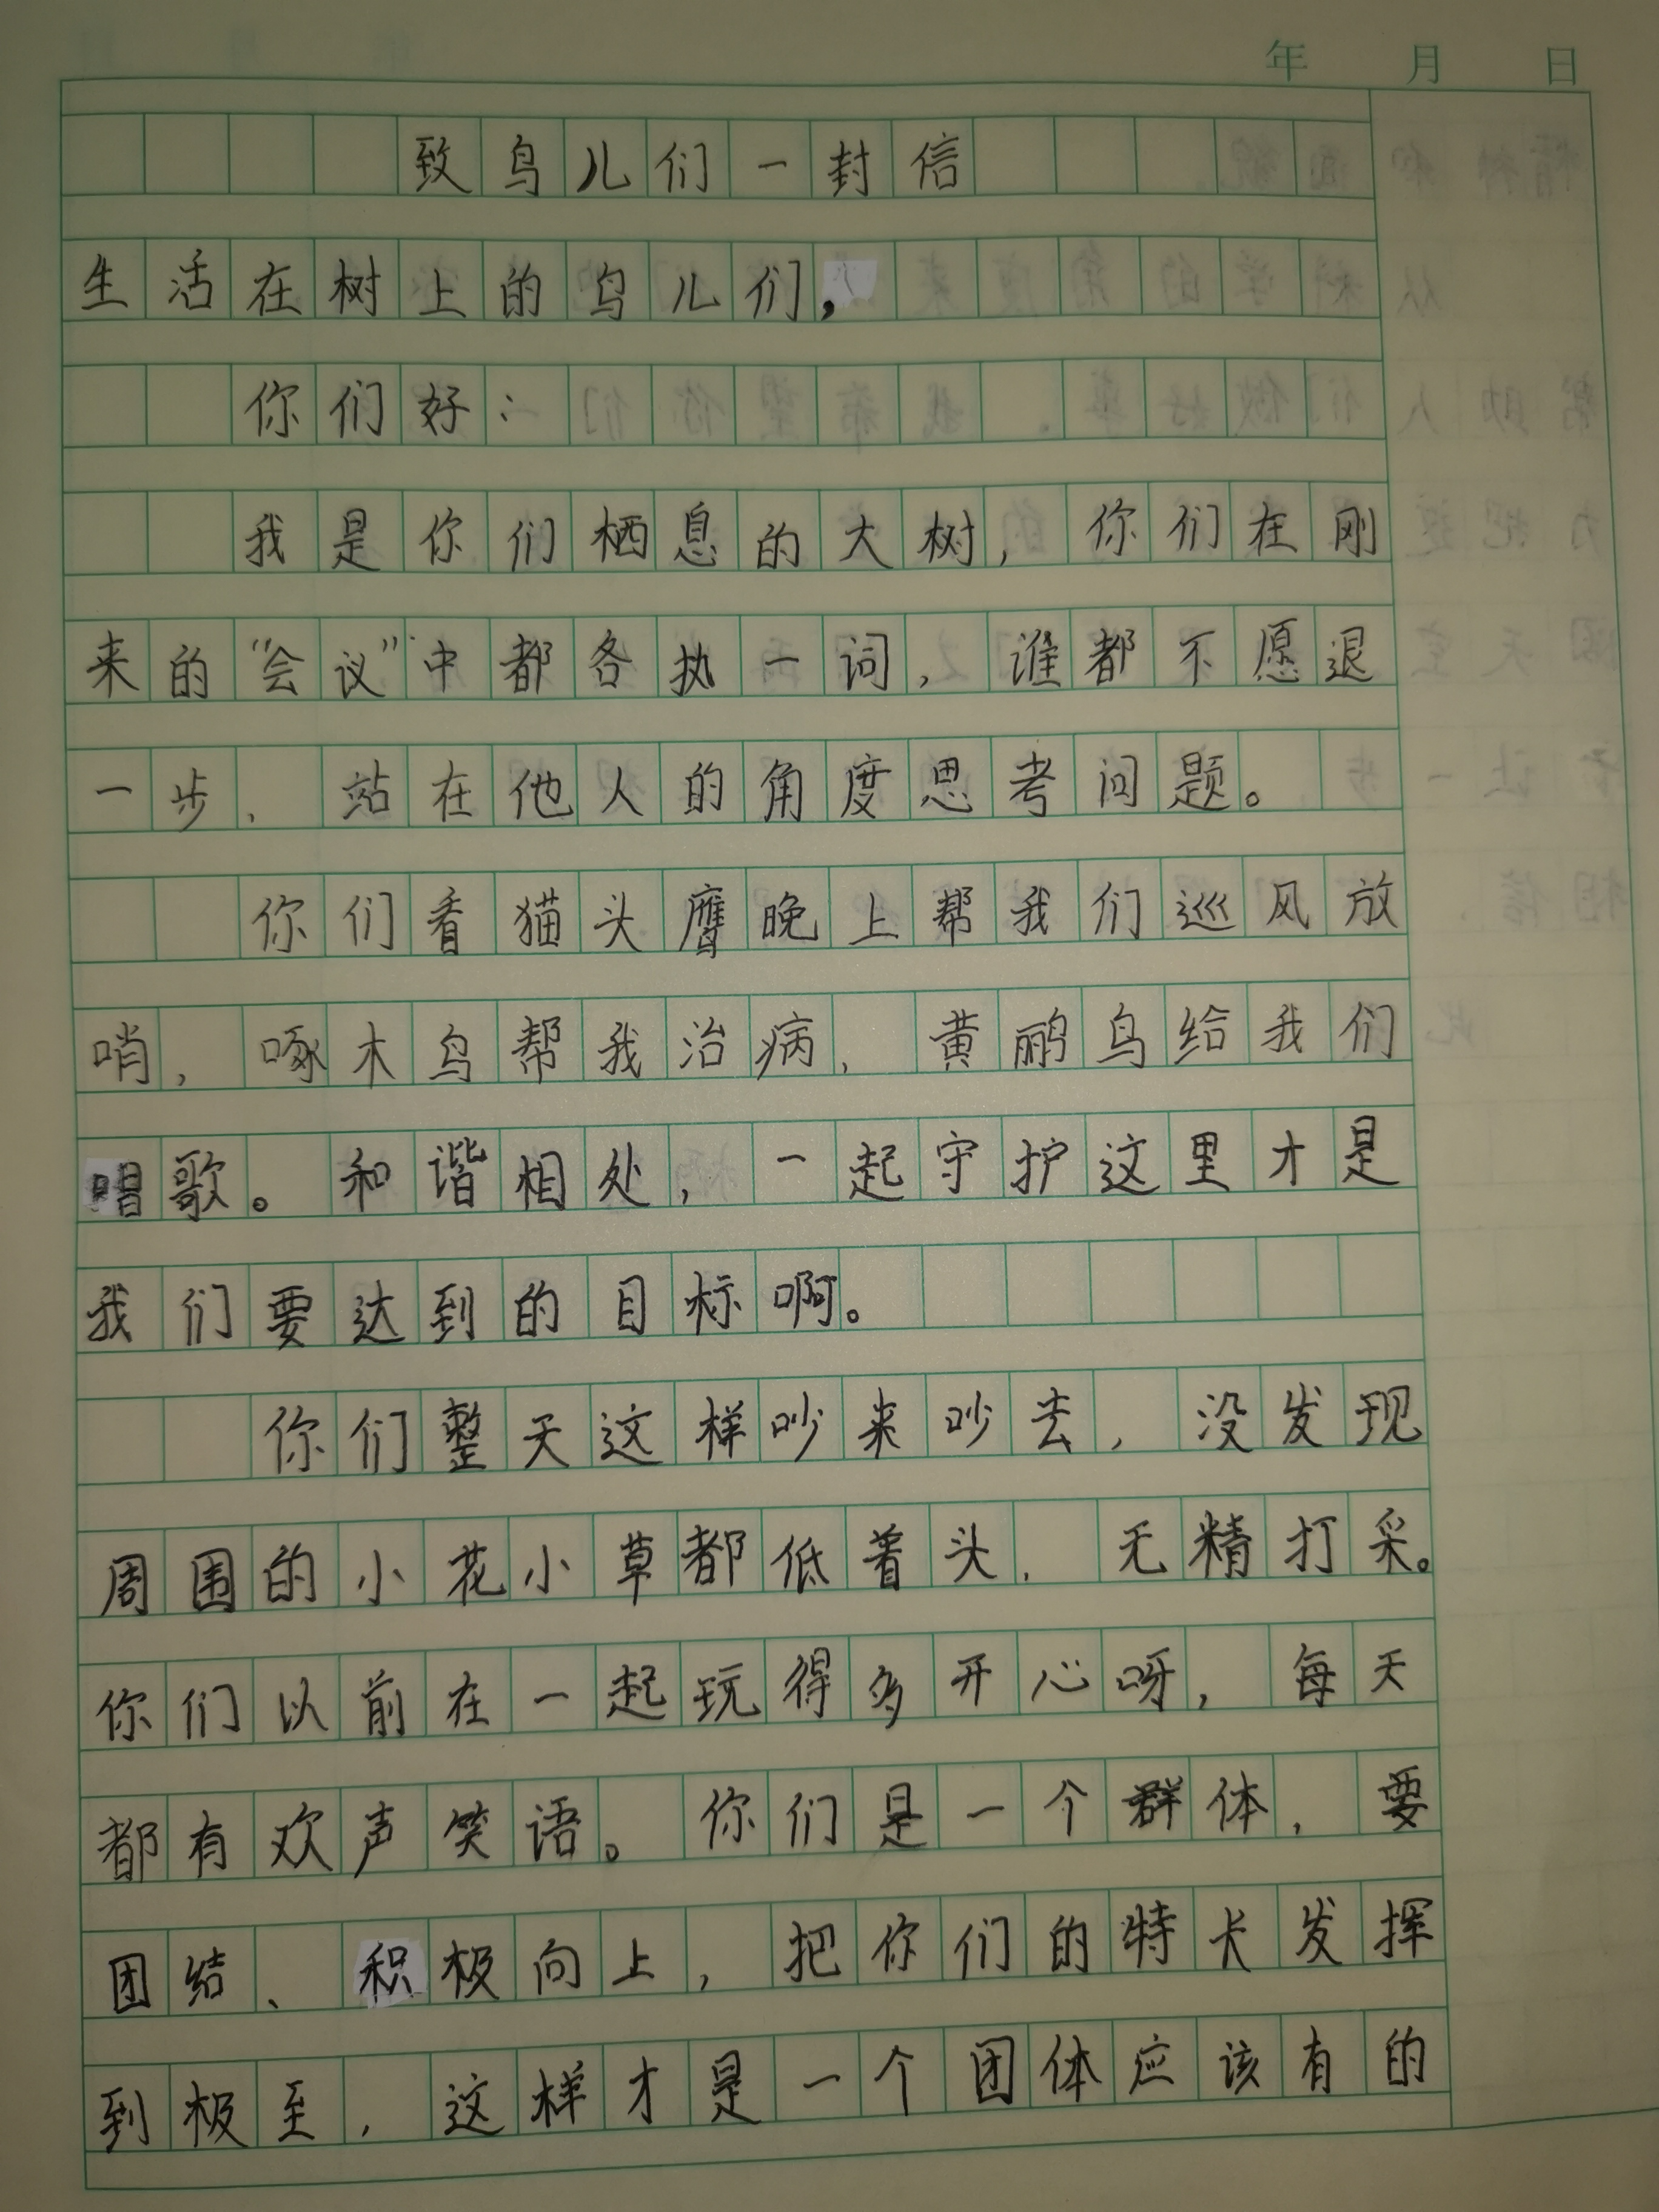 年 月 日
致鸟儿们一封信
生活在树上的鸟儿们,
你们好:
我是你们栖息的大树,你们在刚
来的“会议”中都各执一词,谁都不愿退
一步,站在他人的角度思考问题。
你们看猫头鹰晚上帮我们巡风放
哨,啄木鸟帮我治病,黄鹂鸟给我们
唱歌。和谐相处,一起守护这里才是
我们要达到的目标啊。
你们整天这样吵来吵去,没发现
周围的小花小草都低着头,无精打采。
你们以前在一起玩得多开心呀,每天
都有欢声笑语。你们是一个群体,要
团结、积极向上,把你们的特长发挥
到极至,这样才是一个团体应该有的